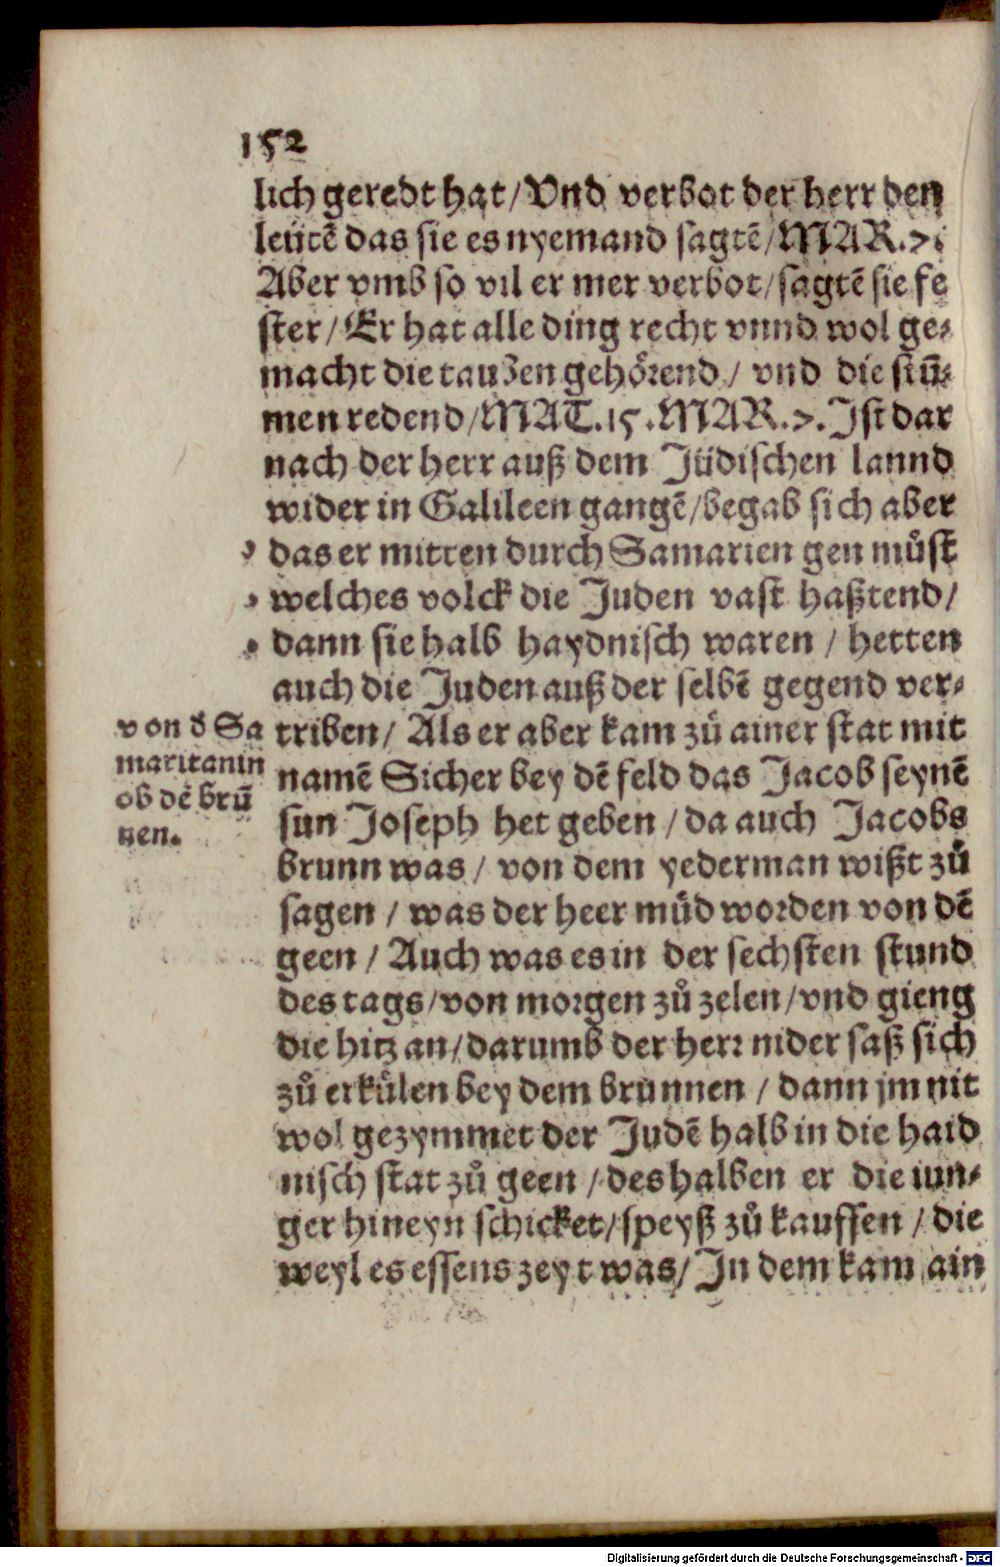 152
lich geredt hat/Vnd verbot der herr den
leütẽ das sie es nyemand sagtẽ/MAR.7.
Aber vmb so vil er mer verbot/sagtẽ sie fe
ster/Er hat alle ding recht vnnd wol ge⸗
macht die tauben gehörend/ vnd die stũ⸗
men redend/MAT.15.MAR.7.Ist dar
nach der herr auß dem Jüdischen lannd
wider in Galileen gangẽ/begab sich aber
das er mitten durch Samarien gen müst
welches volck die Juden vast haßtend/
dann sie halb haydnisch waren / hetten
auch die Juden auß der selbẽ gegend ver⸗
triben/ Als er aber kam zů ainer stat mit
namẽ Sicher bey dẽ feld das Jacob seynẽ
sun Joseph het geben / da auch Jacobs
brunn was / von dem yederman wißt zů
sagen / was der heer müd worden von dẽ
geen / Auch was es in der sechsten stund
des tags/von morgen zů zelen/vnd gieng
die hitz an/darumb der herr nider saß sich
zů erkülen bey dem brunnen / dann jm nit
wol gezymmet der Judẽ halb in die haid
nisch stat zů geen / deshalben er die iun⸗
ger hineyn schicket/speyß zů kauffen / die
weyl es essens zeyt was/ In dem kam ain
von d̕ Sa
maritanin
ob dẽ brũ
nen.
Digitalisierung gefördert durch die Deutsche Forschungsgemeinschaft - DFG